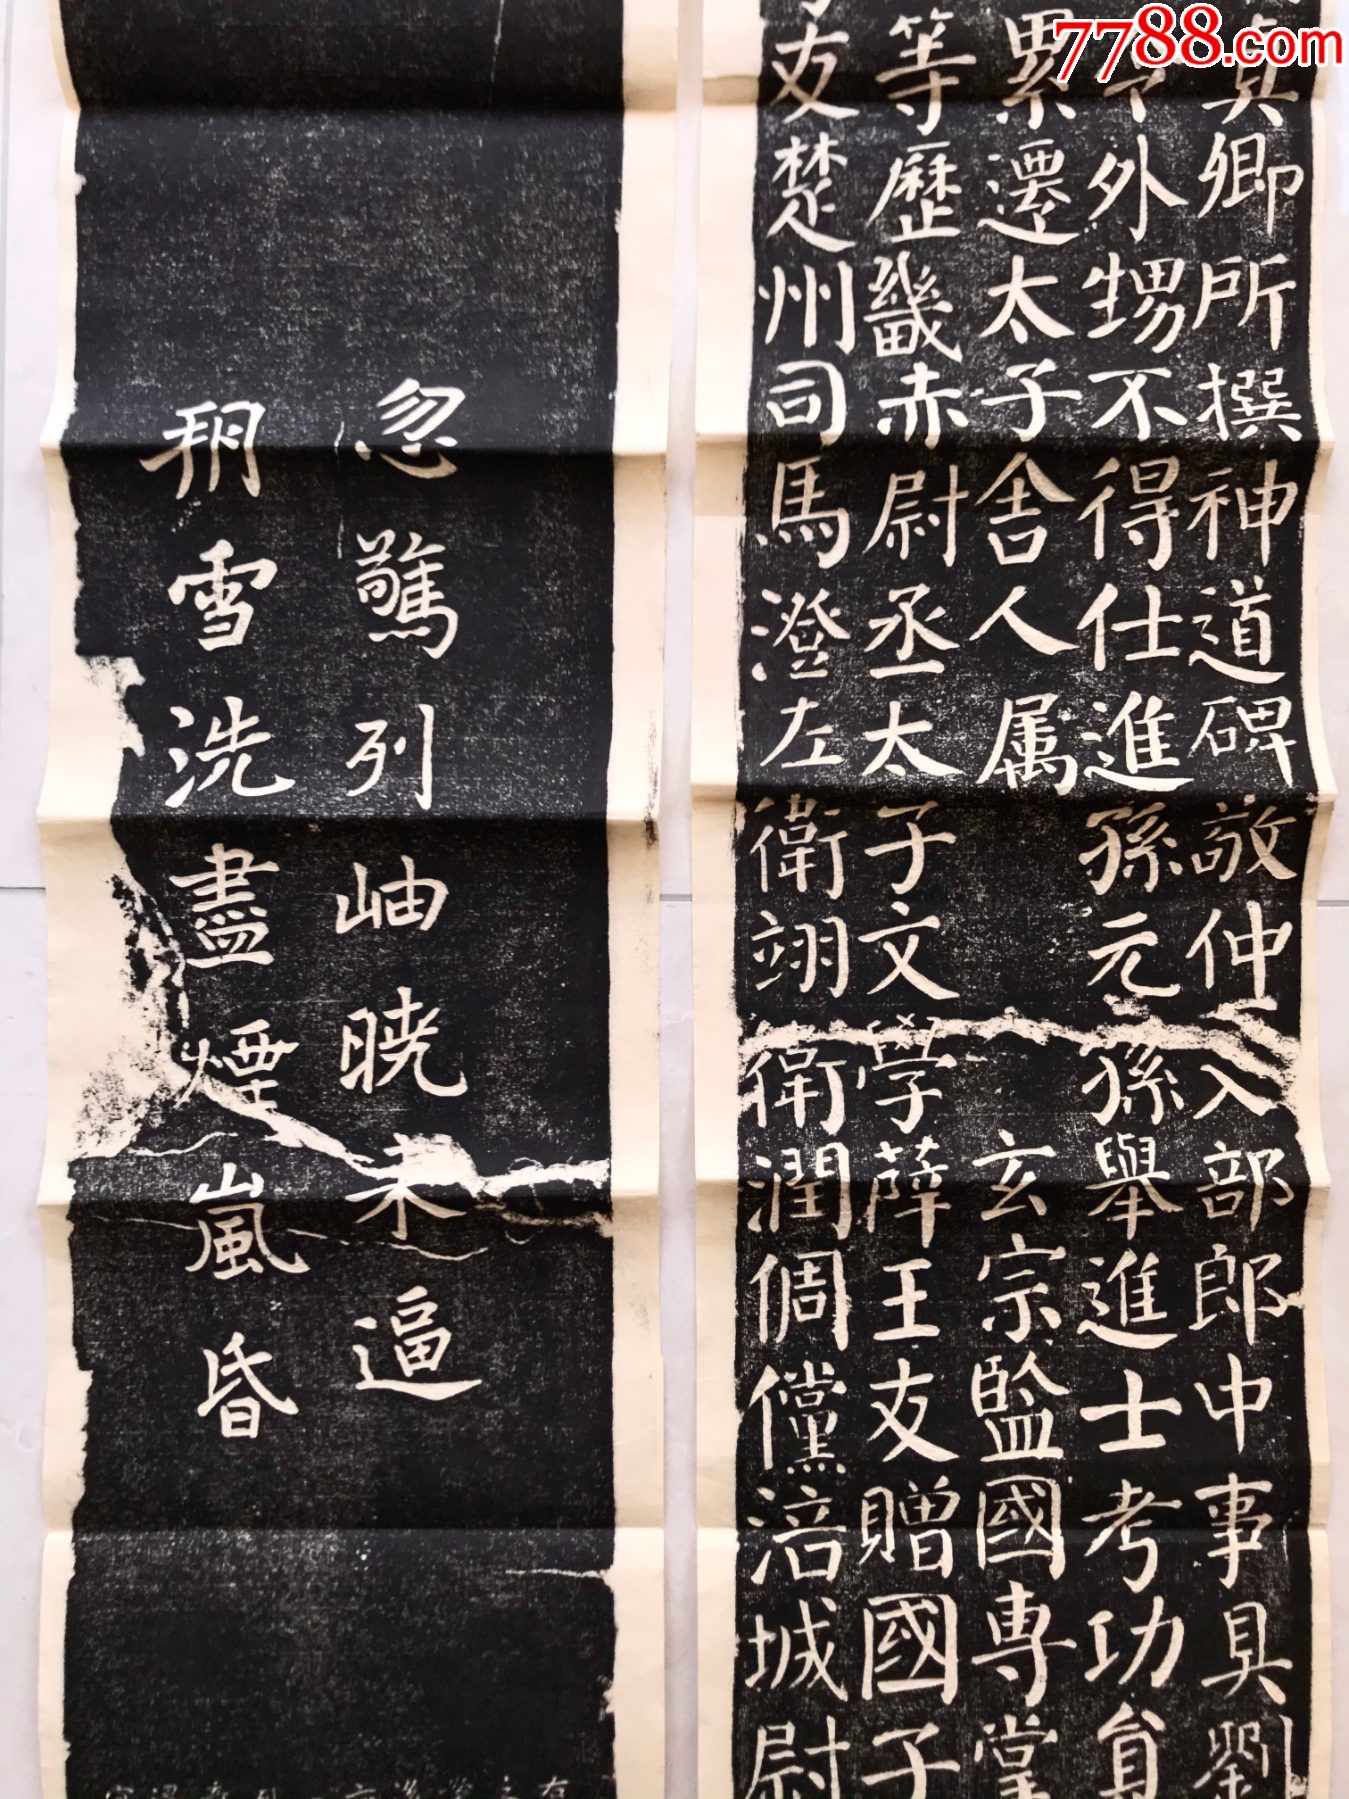 7788.com
真卿所撰神道碑敬仲入部郎中事具劉
外甥不得仕進孫元孫舉進士考功員
累遷太子舍人属 玄宗監國專掌
等歷畿赤尉丞太子文學薛王友贈國子
友楚州司馬澄左衛翊衛潤倜儻涪城尉
忽驚列岫曉未逼
朔雪洗盡煙嵐昏